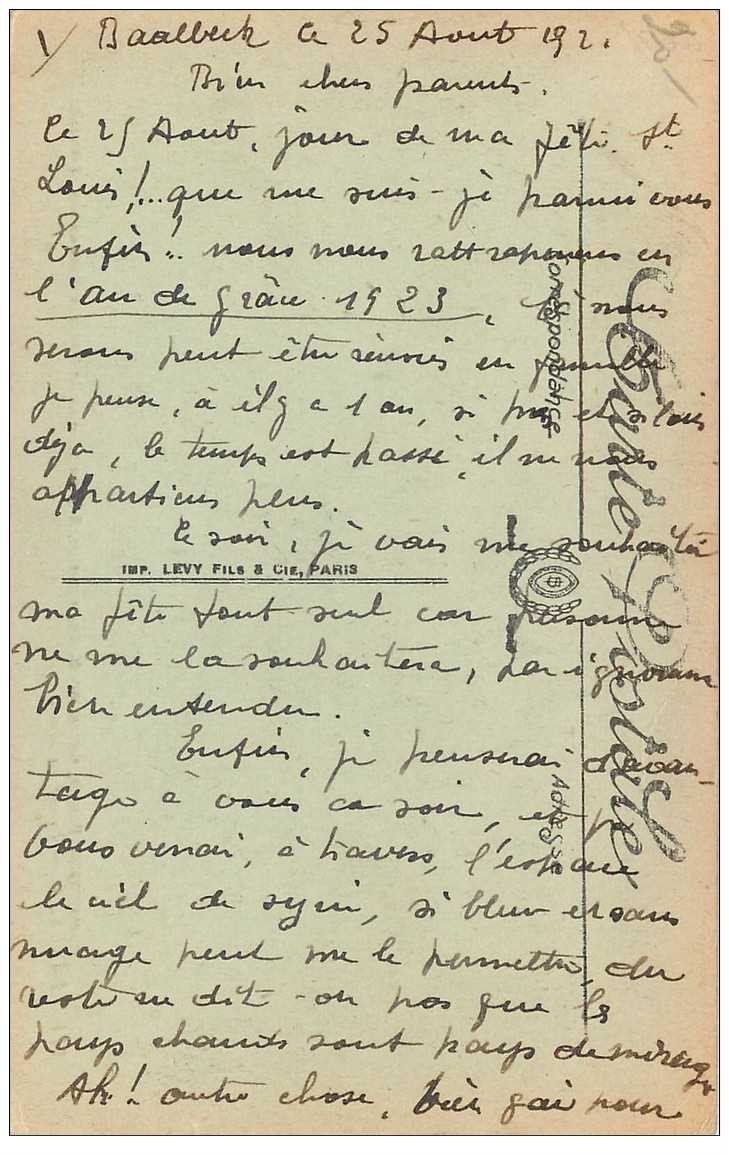 1/ Baalbeck le 25 Aout 192.
20/
Bien chers parents.
Ce 25 Aout, jour de ma fête. St
Louis!... que ne suis-je parmi vous
Enfin!.. nous nous rattraperons en
l'an de grâce 1923, là nous
serons peut être réunis en famille
je pense, à il y a 1 an, si près et si loin
déja, le temps est passé, il ne nous
appartiens plus.
Ce soir, je vais me souhaiter
IMP. LEVY FILS & CIE, PARIS
ma fête tout seul car personne
ne me la souhaitera, par ignorance
bien entendu.
Enfin, je penserai davan-
tage à vous ce soir, et je
vous verrai, à travers, l'espace
le ciel de syrie, si bleu et sans
nuage peut me le permettre, du
reste ne dit-on pas que les
pays chauds sont pays de mirage
Ah! autre chose, bien gai pour
Carte Postale
Correspondance
Adresse